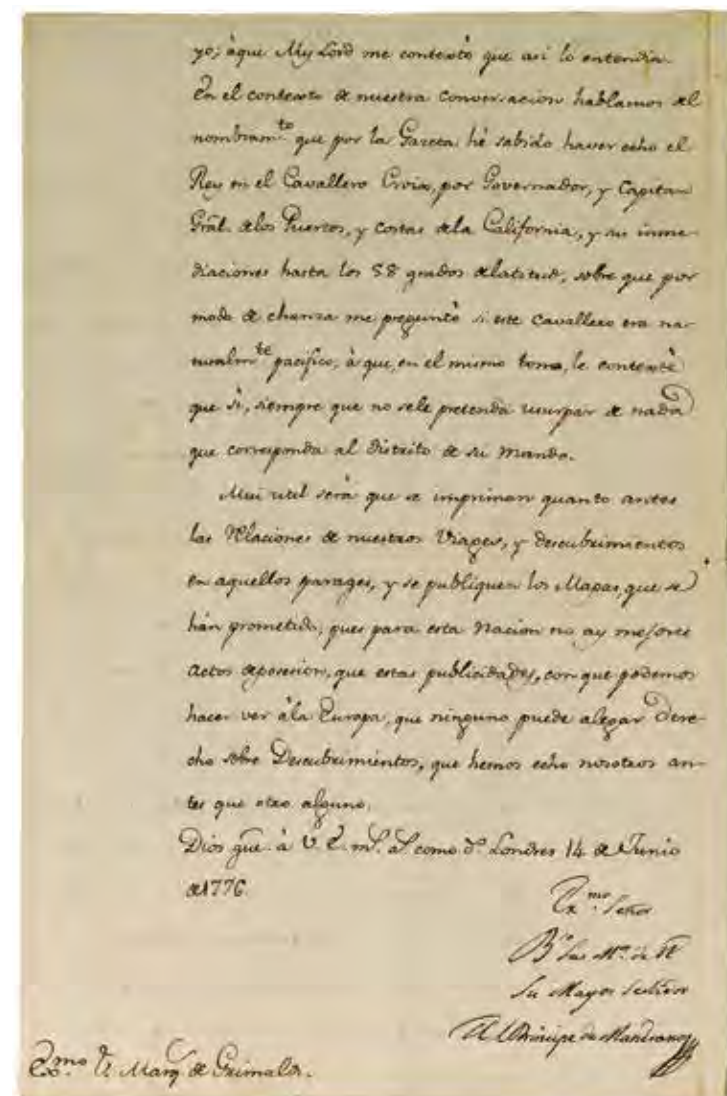 yo; à que My Lord me contextò que asi lo entendia.
En el contexto de nuestra conversacion hablamos del
nombram.to que por la Gazeta hè sabido haver echo el
Rey en el Cavallero Croix, por Governador, y Capitan
Grāl. de los Puertos, y costas de la California, y su inme-
diaciones hasta los 58 grados de latitud, sobre que por
modo de chanza me preguntò si este Cavallero era na-
turalm.te pacifico, à que, en el mismo tono, le contextè
que si, siempre que no se le pretenda usurpar de nada
que corresponda al distrito de su mando.
Mui util serà que se impriman quanto antes
las Relaciones de nuestros Viages, y descubrimientos
en aquellos parages, y se publiquen los Mapas, que se
hàn prometido, pues para esta Nacion no ay mejores
actos de posesion, que estas publicidades, con que podemos
hacer ver à la Europa, que ninguno puede alegar dere-
cho sobre Descubrimientos, que hemos echo nosotros an-
tes que otro alguno.
Dios güe. à V. E. m.s a.s como d.o Londres 14 de Junio
de 1776.
Ex.mo Señor
B.
Su Mayor Servidor
El Principe de Masserano
Ex.mo S.r Marq.s de Grimaldi.